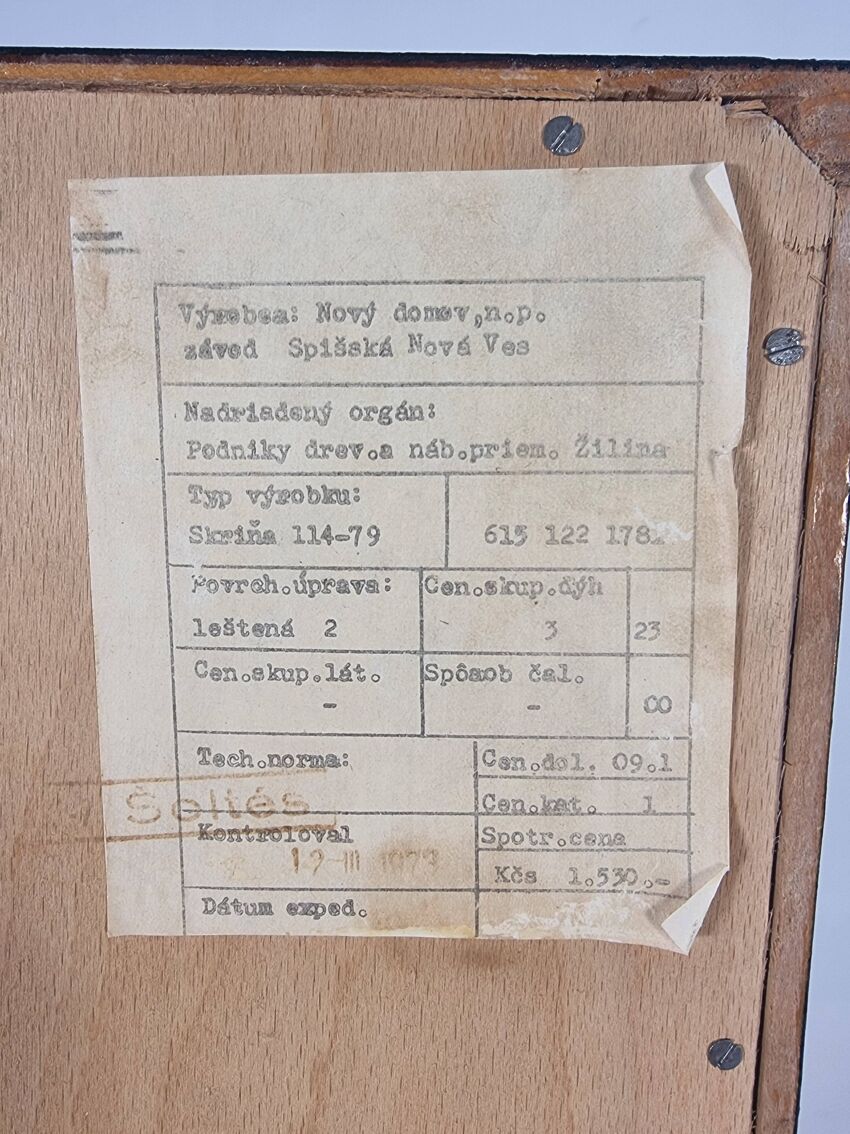 Výrobca: Nový domov,n.p.
závod Spišská Nová Ves
Nadriadený orgán:
Podniky drev.a náb.priem. Žilina
Typ výrobku:
Skriňa 114-79
615 122 178
Povrch.úprava:
leštená 2
Cen.skup.dýh
3
23
Cen.skup.lát.
-
Spôsob čal.
-
00
Tech.norma:
Cen.dol. 09.1
Cen.kat. 1
Šoltés
Kontroloval
Spotr.cena
Kčs 1.530.-
Dátum exped.